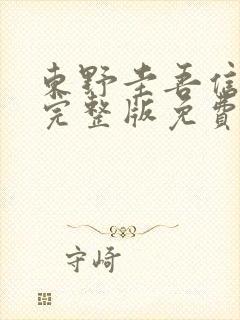 東野圭吾信
完整版免費
守崎